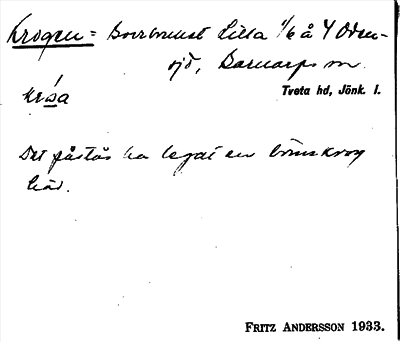 Krogen = Sverbrunet Lilla 1/6 å 4 Oden-
sjö, Barnarps sn.
Tveta hd, Jönk. l.
krɷ́a
Det påstås ha legat en brännkrog
här.
FRITZ ANDERSSON 1933.